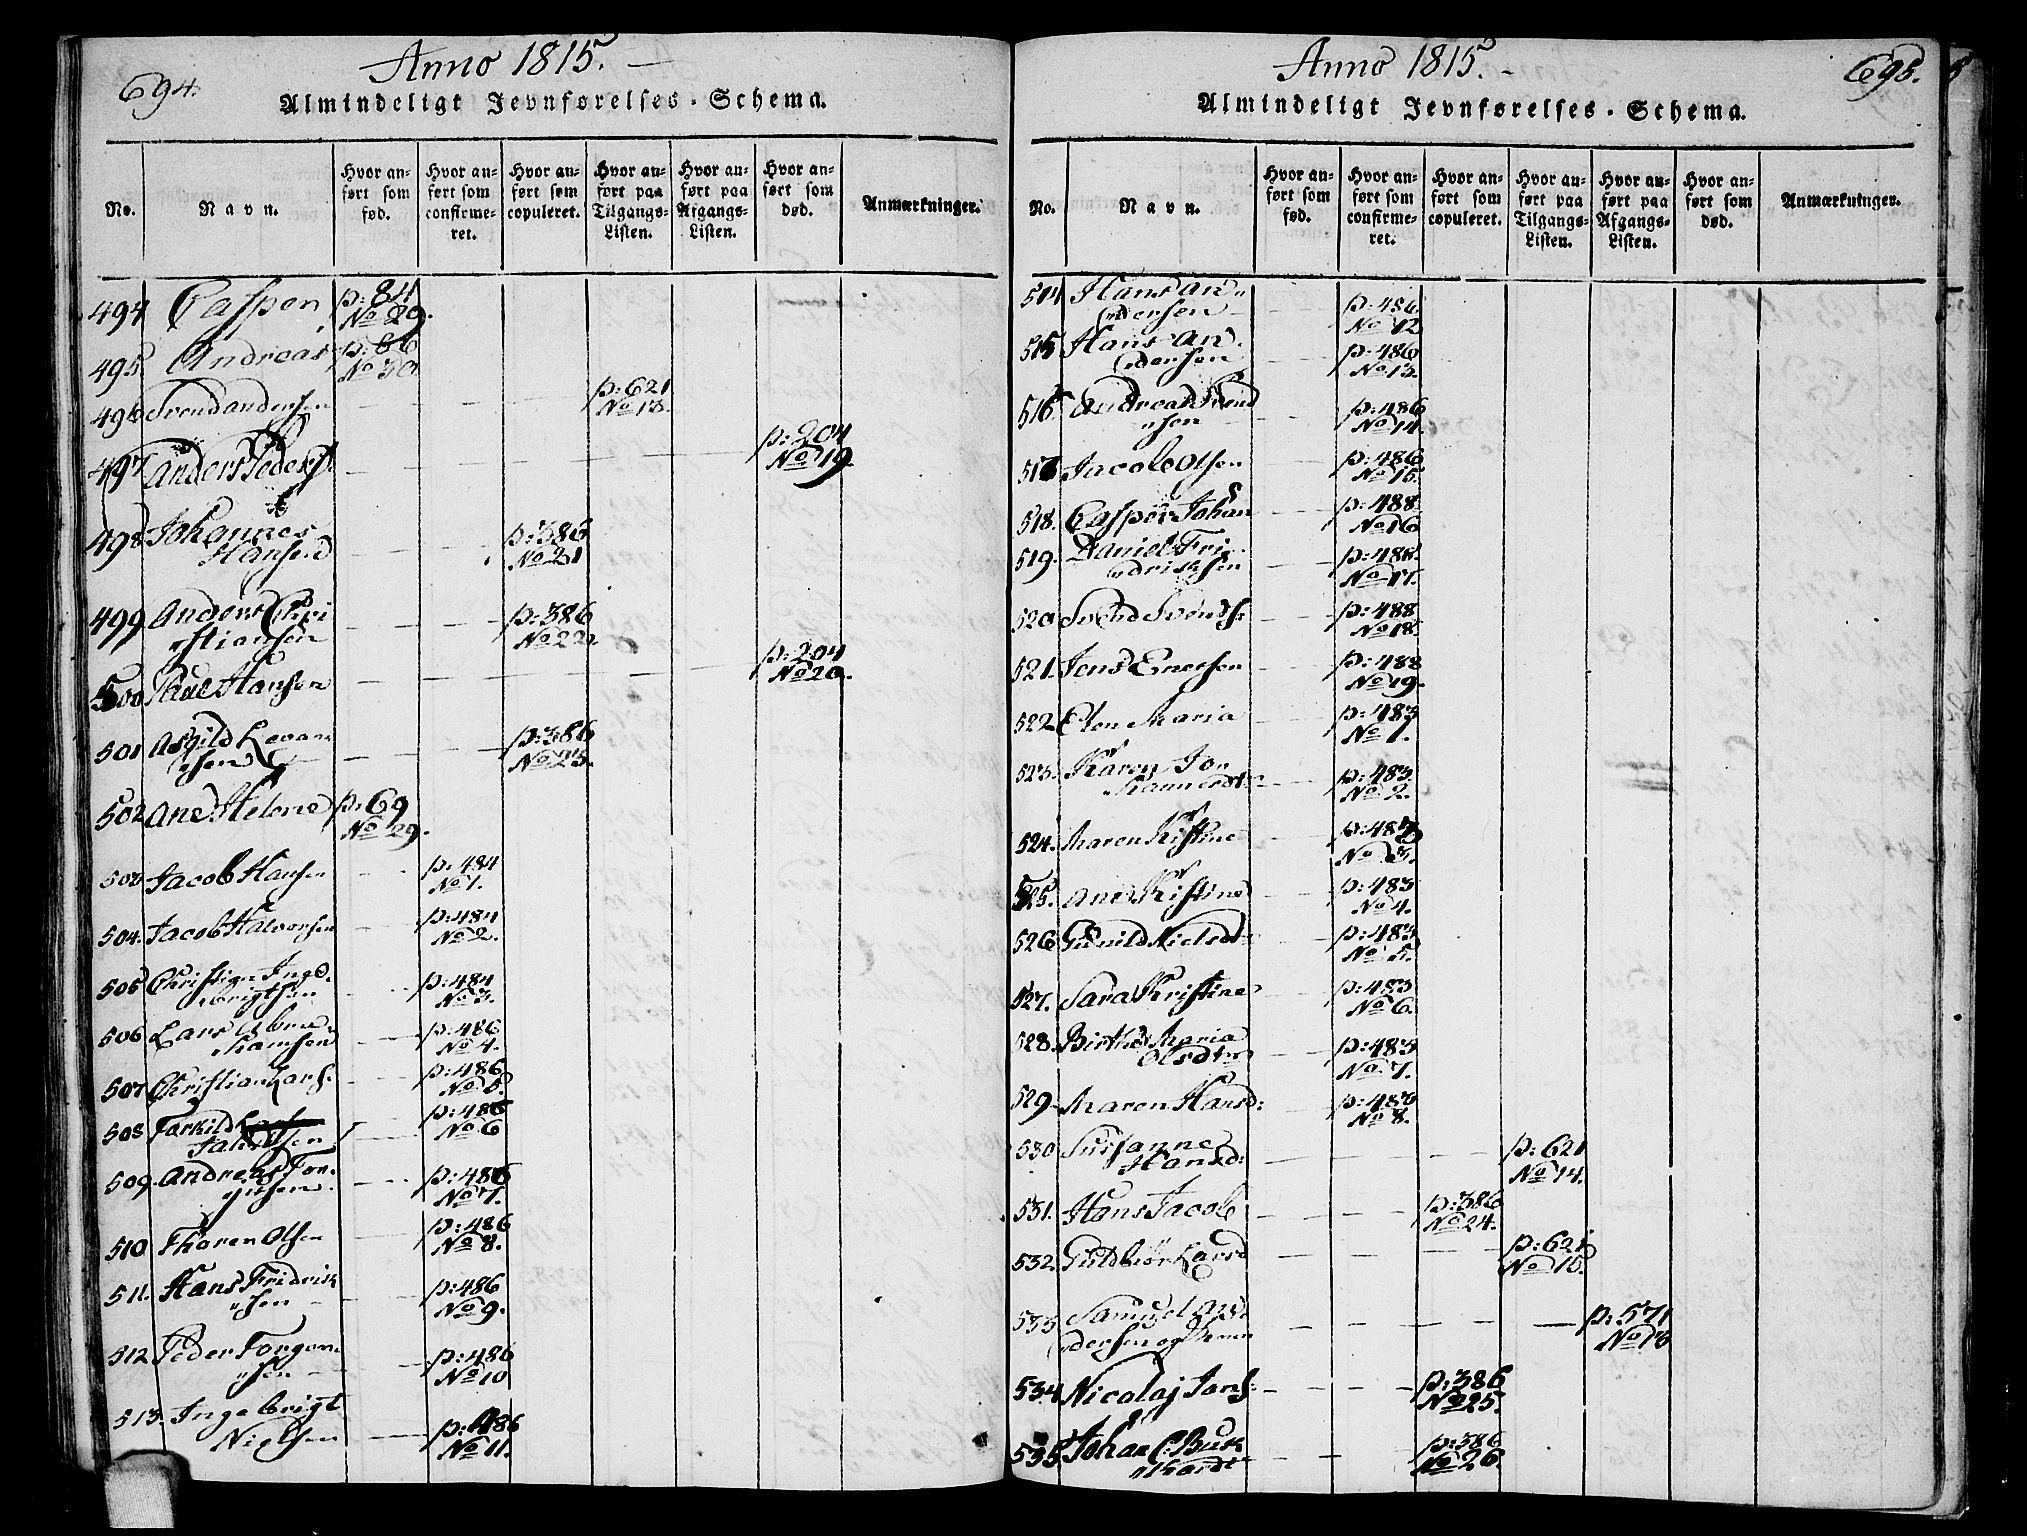 694.
Anno 1815.
Almindeligt Jevnførelses-Schema.
No.
Navn.
Hvor an-
ført som
fød.
Hvor an-
ført som
confirme-
ret.
Hvor an-
ført som
copuleret.
Hvor an-
ført paa
Tilgangs-
Listen.
Hvor an-
ført paa
Afgangs-
Listen.
Hvor an-
ført som
død.
Anmærkninger.
494 Casper p: 84
No 29.
495 Andreas p: 86
No 30
496 Svend Andersen p: 621
No 13.
497 Anders Peders: p: 204
No 19.
498 Johannes
Hansen p: 386
No 21
499 Anders Chri
stiansen p: 386
No 22.
500 Paul Hansen p: 204
No 20.
501 Asgild
sen p: 386
No 23.
502 Ane Helene p: 69
No 29.
503 Jacob Hansen p: 484
No 1.
504. Jacob Halvorsen p: 484
No 2.
505 Christian Inge-
brigtsen p: 484
No 3.
506 Lars Abra-
hamsen p: 486
No 4.
507 Christian Lars: p: 486
No 5.
508 Tarkild
p: 486
No 6
509. Andreas Tor-
gisen. p: 486
No 7.
510 Tharen Olsen p: 486
No 8.
511. Hans Fridrik
sen p: 486
No 9.
512 Peder Torgem
sen p: 486
No 10
513. Ingebrigt
Nielsen p: 486
No 11.
695.
Anno 1815.
Almindeligt Jevnførelses-Schema.
No.
Navn.
Hvor an-
ført som
fød.
Hvor an-
ført som
confirme-
ret.
Hvor an-
ført som
copuleret.
Hvor an-
ført paa
Tilgangs-
Listen.
Hvor an-
ført paa
Afgangs-
Listen.
Hvor an-
ført som
død.
Anmærkninger.
514 Hans An
dersen p: 486.
No 12
515 Hans An
dersen p: 486
No 13.
516 Andreas Svend
sen p: 486
No 14.
517 Jacob Olsen p: 486
No 15.
518. Casper Johan p: 488
No 16
519. Daniel Fri
driksen p: 488.
No 17.
520 Svend Svends: p: 488
No 18.
521. Jens Enersen p: 488
No 19.
522 Elen Maria p: 483
No 1.
523. Karen Jo
hannesdt: p: 483
No 2.
524. Maren Kistine p: 483
No 3.
525. Ane Kistine p: 483
No 4.
526 Gunild Nielsdt: p: 483
No 5.
527. Sara Kristine p: 483
No 6.
528. Birthe Maria
Olsdtr p: 483
No 7.
529. Maren Hansd: p: 483
No 8.
530 Susanne
Hansd: p: 621
No 14.
531. Hans Jacob p: 386
No 24.
532. Guldbiør Larsd p: 621
No 15.
533 Samuel An
dersen og p: 571
No 13
534 Nicolaj Jans: p: 386
No 25.
535 Johan C: Buk
hardt p: 386
No 26